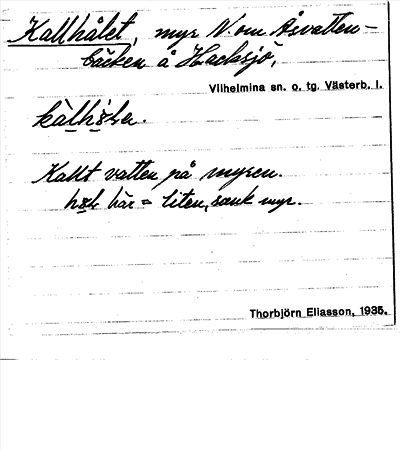 Kallhålet, myr N. om Åsvatten-
bäcken å Hacksjö,
Vilhelmina sn. o. tg. Västerb. l.
Kallt vatten på myren.
här = liten, sank myr.
Thorbjörn Eliasson, 1935.